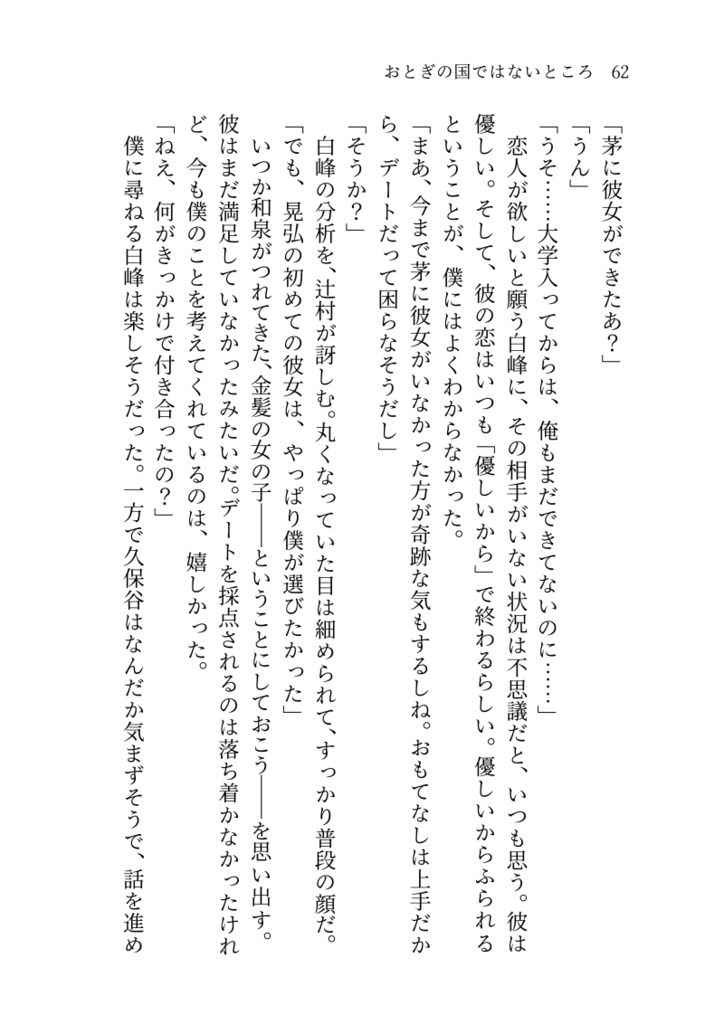 おとぎの国ではないところ 62
「茅に彼女ができたあ？」
「うん」
「うそ……大学入ってからは、俺もまだできてないのに……」
恋人が欲しいと願う白峰に、その相手がいない状況は不思議だと、いつも思う。彼は
優しい。そして、彼の恋はいつも「優しいから」で終わるらしい。優しいからふられる
ということが、僕にはよくわからなかった。
「まあ、今まで茅に彼女がいなかった方が奇跡な気もするしね。おもてなしは上手だか
ら、デートだって困らなそうだし」
「そうか？」
白峰の分析を、辻村が訝しむ。丸くなっていた目は細められて、すっかり普段の顔だ。
「でも、晃弘の初めての彼女は、やっぱり僕が選びたかった」
いつか和泉がつれてきた、金髪の女の子――ということにしておこう――を思い出す。
彼はまだ満足していなかったみたいだ。デートを採点されるのは落ち着かなかったけれ
ど、今も僕のことを考えてくれているのは、嬉しかった。
「ねえ、何がきっかけで付き合ったの？」
僕に尋ねる白峰は楽しそうだった。一方で久保谷はなんだか気まずそうで、話を進め